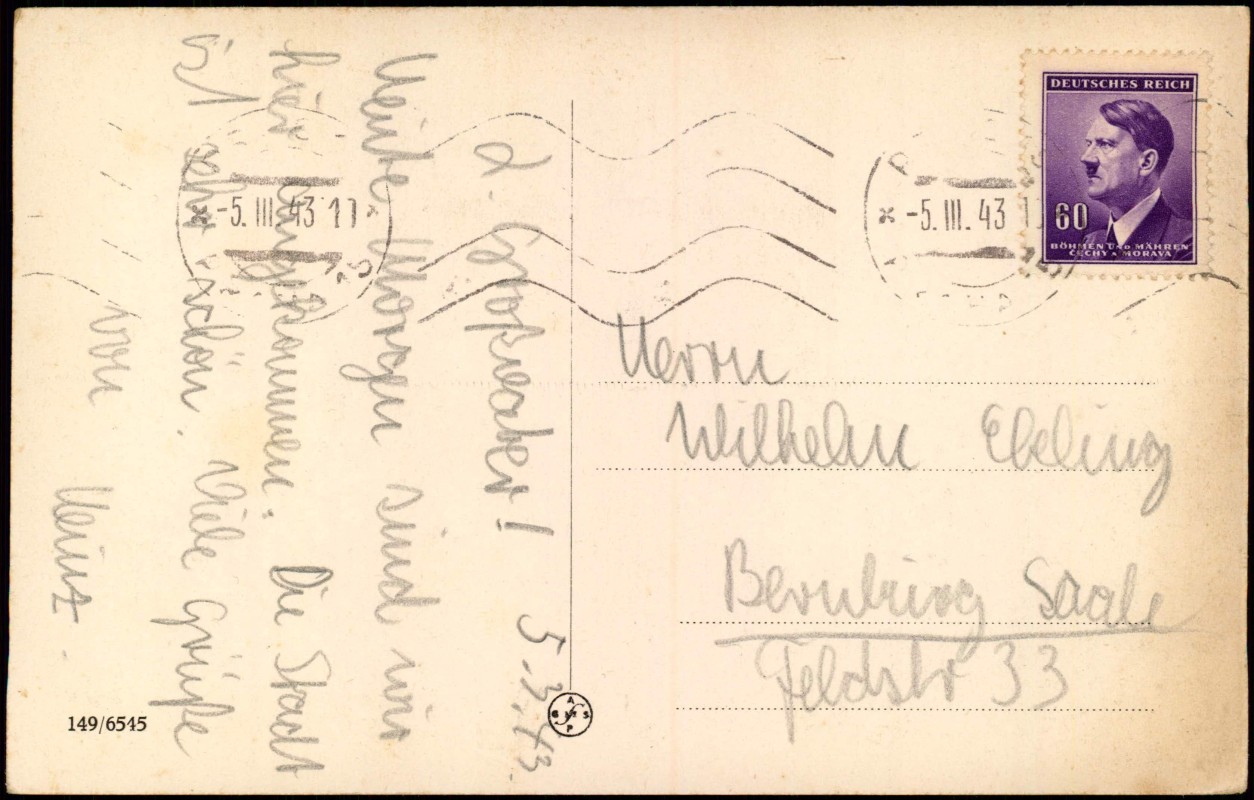 L. Großvater! 5.3.43.
Heute Morgen sind wir
hier angekommen. Die Stadt
ist sehr schön. Viele Grüße
von
Heinz.
-5.III.43 11
-5.III.43 1
DEUTSCHES REICH
60
BÖHMEN UND MÄHREN
ČECHY A MORAVA
Herrn
Wilhelm Ebeling
Bernburg Saale
Feldstr 33
149/6545